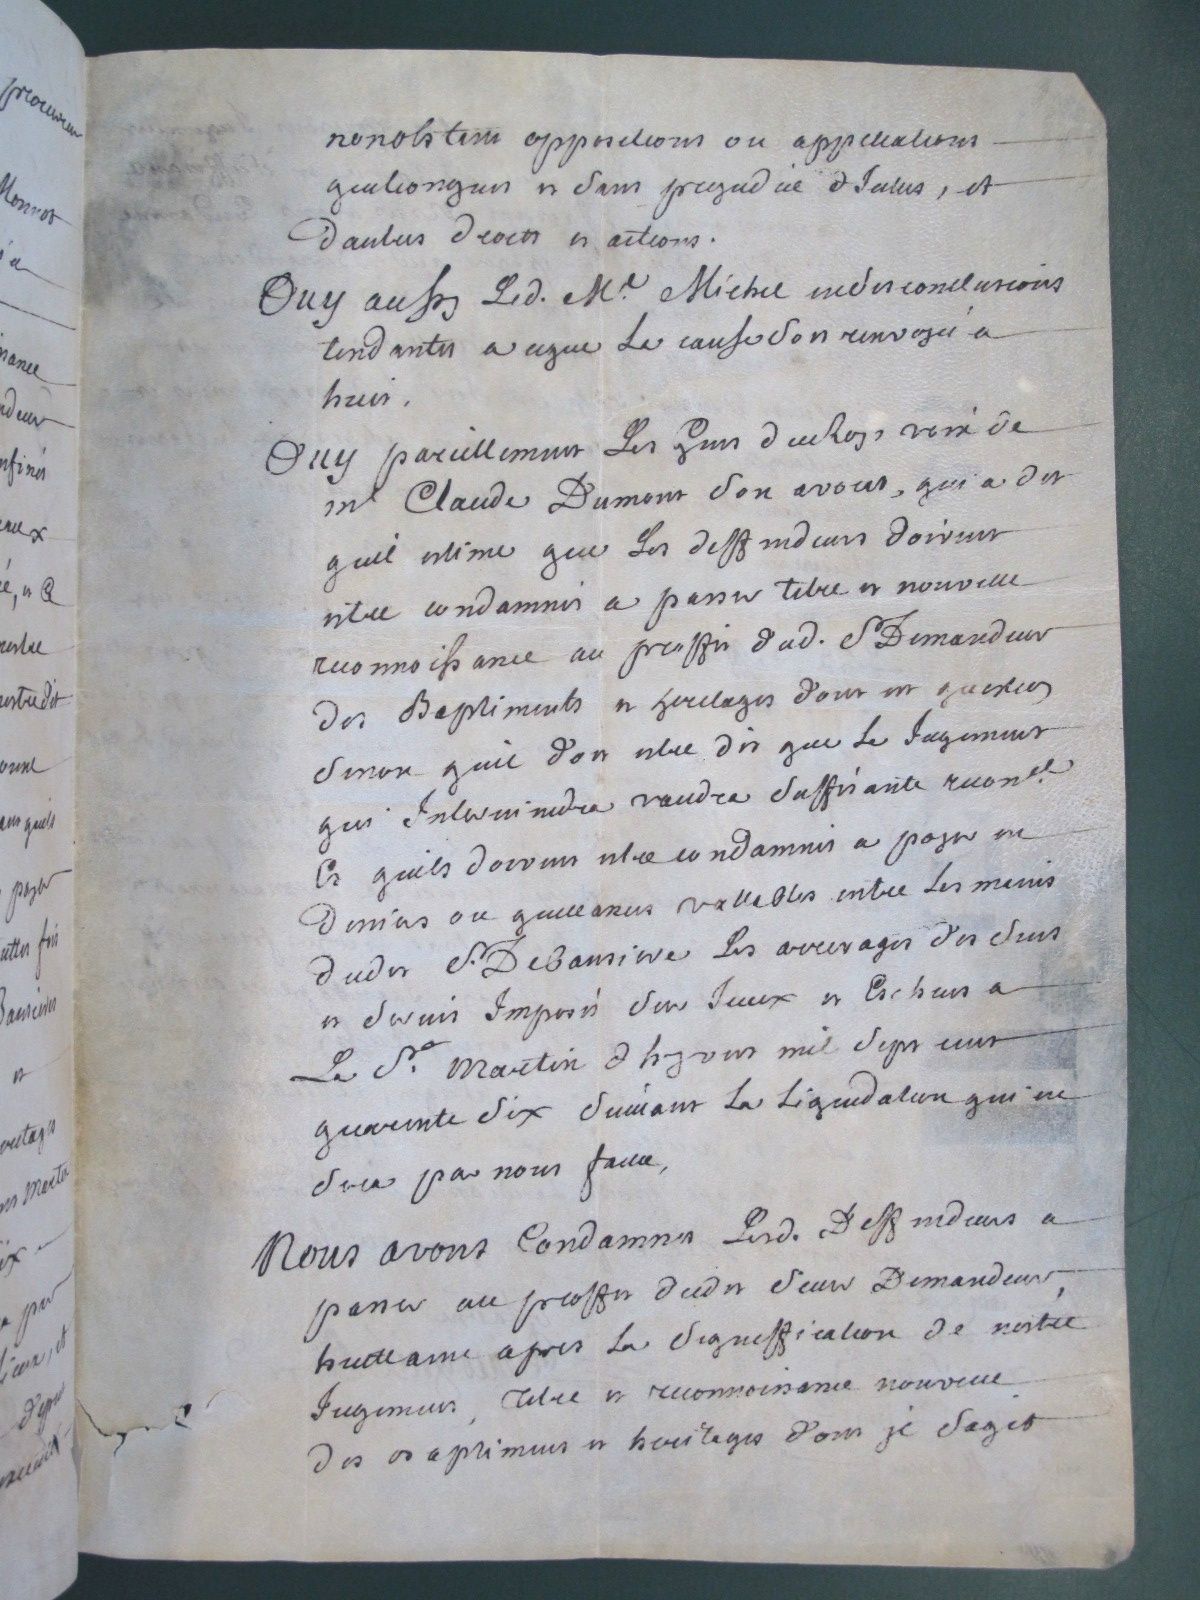 procureur
Monnot
nonobstant oppositions ou appellations
quelconques et sans prejudice d'Iceux, et
d'autres droits et actions.
Ouy aussy Led. Me. Michel en ses conclusions
tendantes a ceque La cause soit renvoyée a
huis.
Ouy pareillement Les Gens du Roy, voix de
me Claude Dumont son avocat, qui a dit
quil estime que Les deffendeurs doivent
estre condamnés a passer titre et nouvelle
reconnoissance au proffit dud. Sr. Demandeur
des Baptiments et heritages dont est question
sinon quil doit estre dit que Le Jugement
qui Interviendra vaudra suffisante reconce.
Et quils doivent estre condamnés a payer en
deniers ou quittances vallables entre Les mains
dudit Sr. Debaussiere Les arrerages des cens
et servis Imposés sur Iceux et Escheus a
La St. Martin d'hyvert mil sept cent
quarente six suivant La Liquidation qui en
sera par nous faitte,
Nous avons Condamnés Lesd. Deffendeurs a
passer au proffit dudit sieur Demandeur,
huittaine apres La signiffication de nostre
Jugement, titre et reconnoissance nouvelle
des Baptiments et heritages dont il s'agit